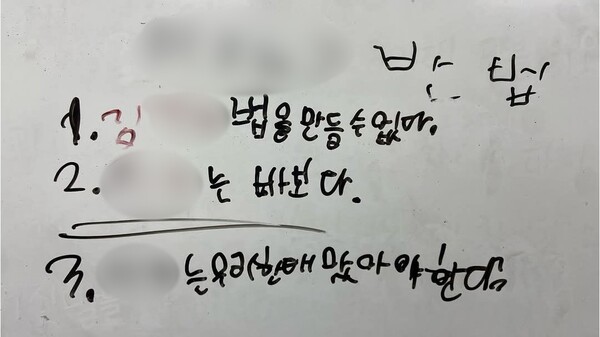 반 법
1. 김 법을 만들 수 없다.
2. 는 바보다.
3. 는 우리한테 맞아야 한다